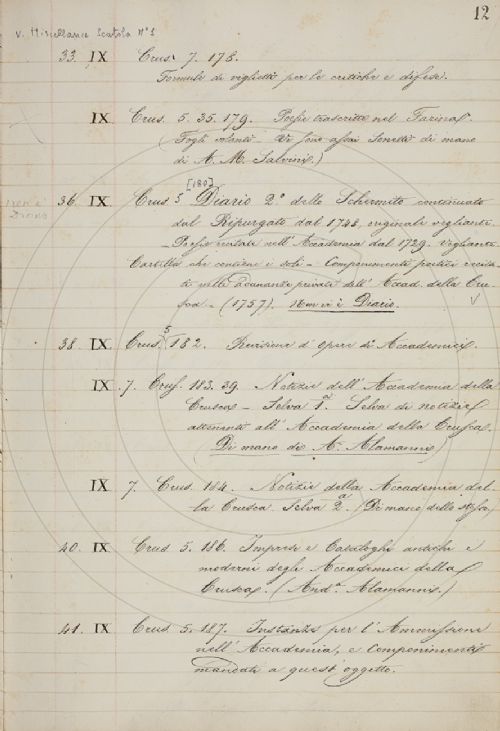 12
v. Miscellanea Scatola N° 1
33. IX Crus. 7. 178.
Formule di viglietti per le critiche e difese.
IX. Crus. 5. 35. 179. Poesie trascritte nel Farinaj.
(Fogli volanti - Vi sono assai Sonetti di mano
di A. M. Salvini.)
[180]
36. IX. Crus. 5 Diario 2° dello Schermito continuato
dal Ripurgato dal 1748, originale vigliante.
- Poesie recitate nell'Accademia dal 1729. vigliante
Cartella che contiene i soli - Componimenti poetici recita-
ti nelle adunanze private dell'Accad. della Cru-
sca - (1757). Non vi è Diario.
non è
Diario
38. IX. Crus. 5 182. Revisione d'Opere di Accademici.
IX. 7. Crus. 183. 39. Notizie dell'Accademia della
Crusca - Selva 1.a Selva di notizie
attenenti all'Accademia della Crusca.
(Di mano di A. Alamanni)
IX 7. Crus. 184. Notizie della Accademia del-
la Crusca. Selva 2.a (Di mano dello stesso)
40. IX. Crus 5. 186. Imprese e Cataloghi antichi e
moderni degli Accademici della
Crusca. (And.a Alamanni.)
41. IX. Crus. 5. 187. Instanze per l'Ammissione
nell'Accademia, e Componimenti
mandati a quest'oggetto.